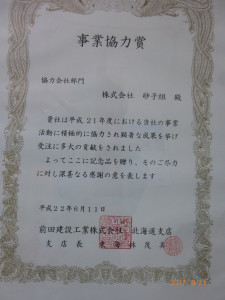 事業協力賞
協力会社部門
株式会社 砂子組 殿
貴社は平成21年度における当社の事業
活動に積極的に協力され顕著な成果を挙げ
受注に多大の貢献をされました
よってここに記念品を贈り、そのご尽力
に対し深甚なる感謝の意を表します
平成22年6月11日
前田建設工業株式会社 北海道支店
支店長 東海林茂美